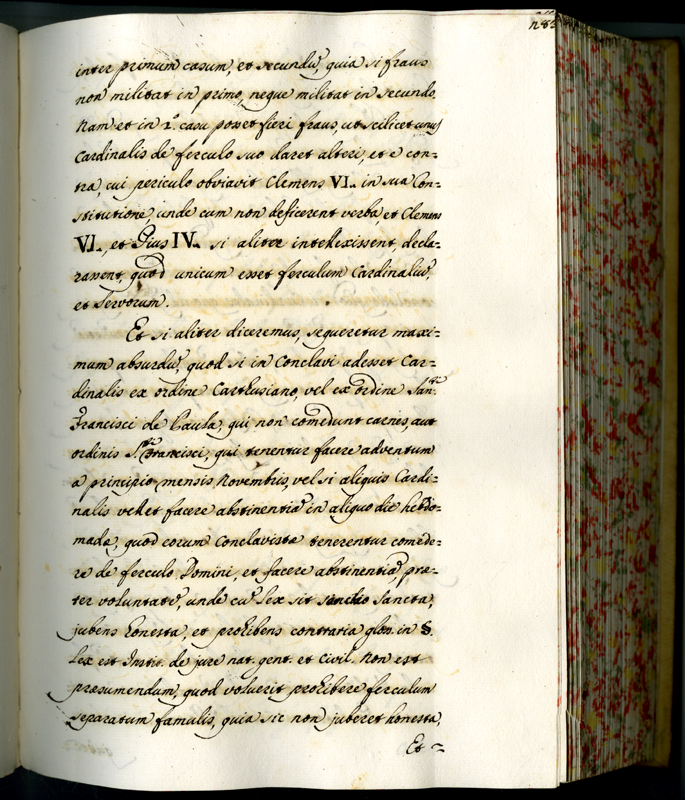 inter primum casum, et secundũ, quia si fraus
non militat in primo, neque militat in secundo.
Nam et in 1.º casu posset fieri fraus, ut scilicet unus
Cardinalis de ferculo suo daret alteri, et e con=
tra, cui periculo obviavit Clemens VI. in sua Con=
stitutione, unde cum non deficerent verba, et Clemens
VI., et Pius IV. si aliter intellexissent, decla=
rassent, quod unicum esset ferculum Cardinaliũ,
et Servorum.
Et si aliter diceremus, sequeretur maxi=
mum absurdũ, quod si in Conclavi adesset Car=
dinalis ex ordine Carthusiano, vel ex ordine San.ᵗⁱ
Francisci de Paula, qui non comedunt carnes, aut
ordinis S.ᵗⁱ Francisci, qui tenentur facere adventum
a principio mensis Novembris, vel si aliquis Cardi=
nalis vellet facere abstinentiã in aliquo die hebdo=
madæ, quod eorum Conclavistæ tenerentur comede=
re de ferculo Domini, et facere abstinentiã, præ=
ter voluntatẽ, unde cũ lex sit sanctio Sancta,
jubens honesta, et prohibens contraria glos. in §.
Lex est Instit. de jure nat. gent. et civil. Non est
præsumendum, quod voluerit prohibere ferculum
separatum famulis, quia sic non juberet honesta,
Et